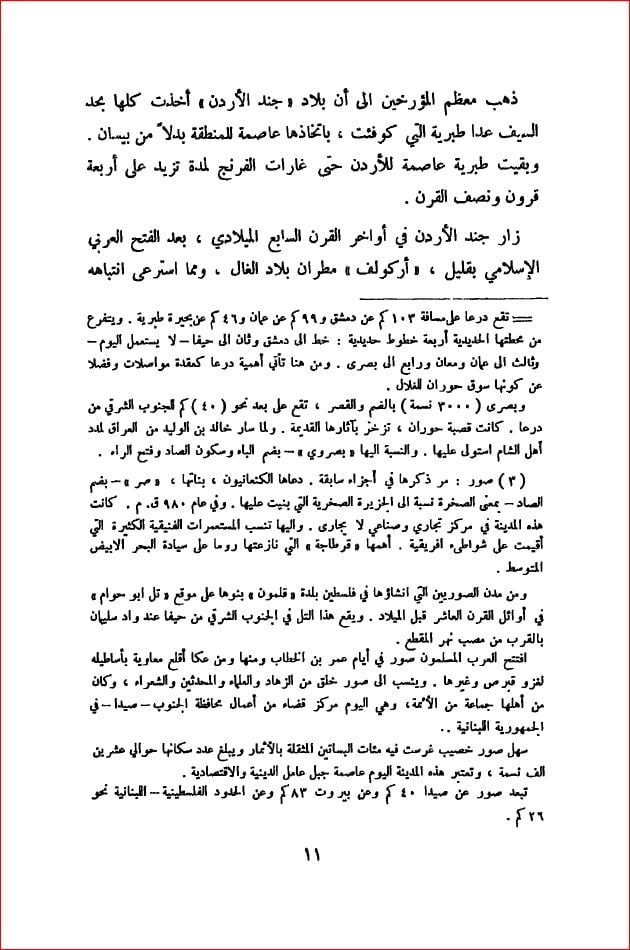 ذهب معظم المؤرخين الى أن بلاد «جند الأردن» أخذت كلها بحد
السيف عدا طبرية التي كوفئت ، باتخاذها عاصمة للمنطقة بدلاً من بيسان .
وبقيت طبرية عاصمة للأردن حتّى غارات الفرنج لمدة تزيد على أربعة
قرون ونصف القرن .
زار جند الأردن في أواخر القرن السابع الميلادي ، بعد الفتح العربي
الإسلامي بقليل ، «أركولف» مطران بلاد الغال ، ومما استرعى انتباهه
== تقع درعا على مسافة ١٠٣ كم عن دمشق و ٩٩ كم عن عمان و ٤٦ كم عن بحيرة طبرية . ويتفرع
من محطتها الحديدية أربعة خطوط حديدية : خط الى دمشق وثان الى حيفا – لا يستعمل اليوم –
وثالث الى عمان ومعان ورابع الى بصرى . ومن هنا تأتي أهمية درعا كعقدة مواصلات وفضلا
عن كونها سوق حوران للغلال .
وبصرى ( ٣٠٠٠ نسمة ) بالضم والقصر ، تقع على بعد نحو ( ٤٠ ) كم للجنوب الشرقي من
درعا . كانت قصبة حوران ، تزخر بآثارها القديمة . ولما سار خالد بن الوليد من العراق لمدد
أهل الشام استولى عليها . والنسبة اليها «بصروي» – بضم الباء وسكون الصاد وفتح الراء .
( ٣ ) صور : مر ذكرها في أجزاء سابقة . دعاها الكنعانيون ، بناتها ، « صر » – بضم
الصاد – بمعنى الصخرة نسبة الى الجزيرة الصخرية التي بنيت عليها . وفي عام ٩٨٠ ق. م . كانت
هذه المدينة في مركز تجاري وصناعي لا يجارى . واليها تنسب المستعمرات الفنيقية الكثيرة التي
أقيمت على شواطىء افريقية . أهمها «قرطاجة» التي نازعتها روما على سيادة البحر الابيض
المتوسط .
ومن مدن الصوريين التي انشاؤها في فلسطين بلدة «قلمون» بنوها على موقع «تل ابو حوام»
في أوائل القرن العاشر قبل الميلاد . ويقع هذا التل في الجنوب الشرقي من حيفا عند واد سليمان
بالقرب من مصب نهر المقطع .
افتتح العرب المسلمون صور في أيام عمر بن الخطاب ومنها ومن عكا أقلع معاوية بأساطيله
لغزو قبرص وغيرها . وينسب الى صور خلق من الزهاد والعلماء والمحدثين والشعراء ، وكان
من أهلها جماعة من الأئمة، وهي اليوم مركز قضاء من أعمال محافظة الجنوب – صيدا – في
الجمهورية اللبنانية ..
سهل صور خصيب غرست فيه مئات البساتين المثقلة بالأثمار ويبلغ عدد سكانها حوالي عشرين
الف نسمة ، وتعتبر هذه المدينة اليوم عاصمة جبل عامل الدينية والاقتصادية .
تبعد صور عن صيدا ٤٠ كم وعن بيروت ٨٣ كم وعن الحدود الفلسطينية – اللبنانية نحو
٢٦ كم .
١١